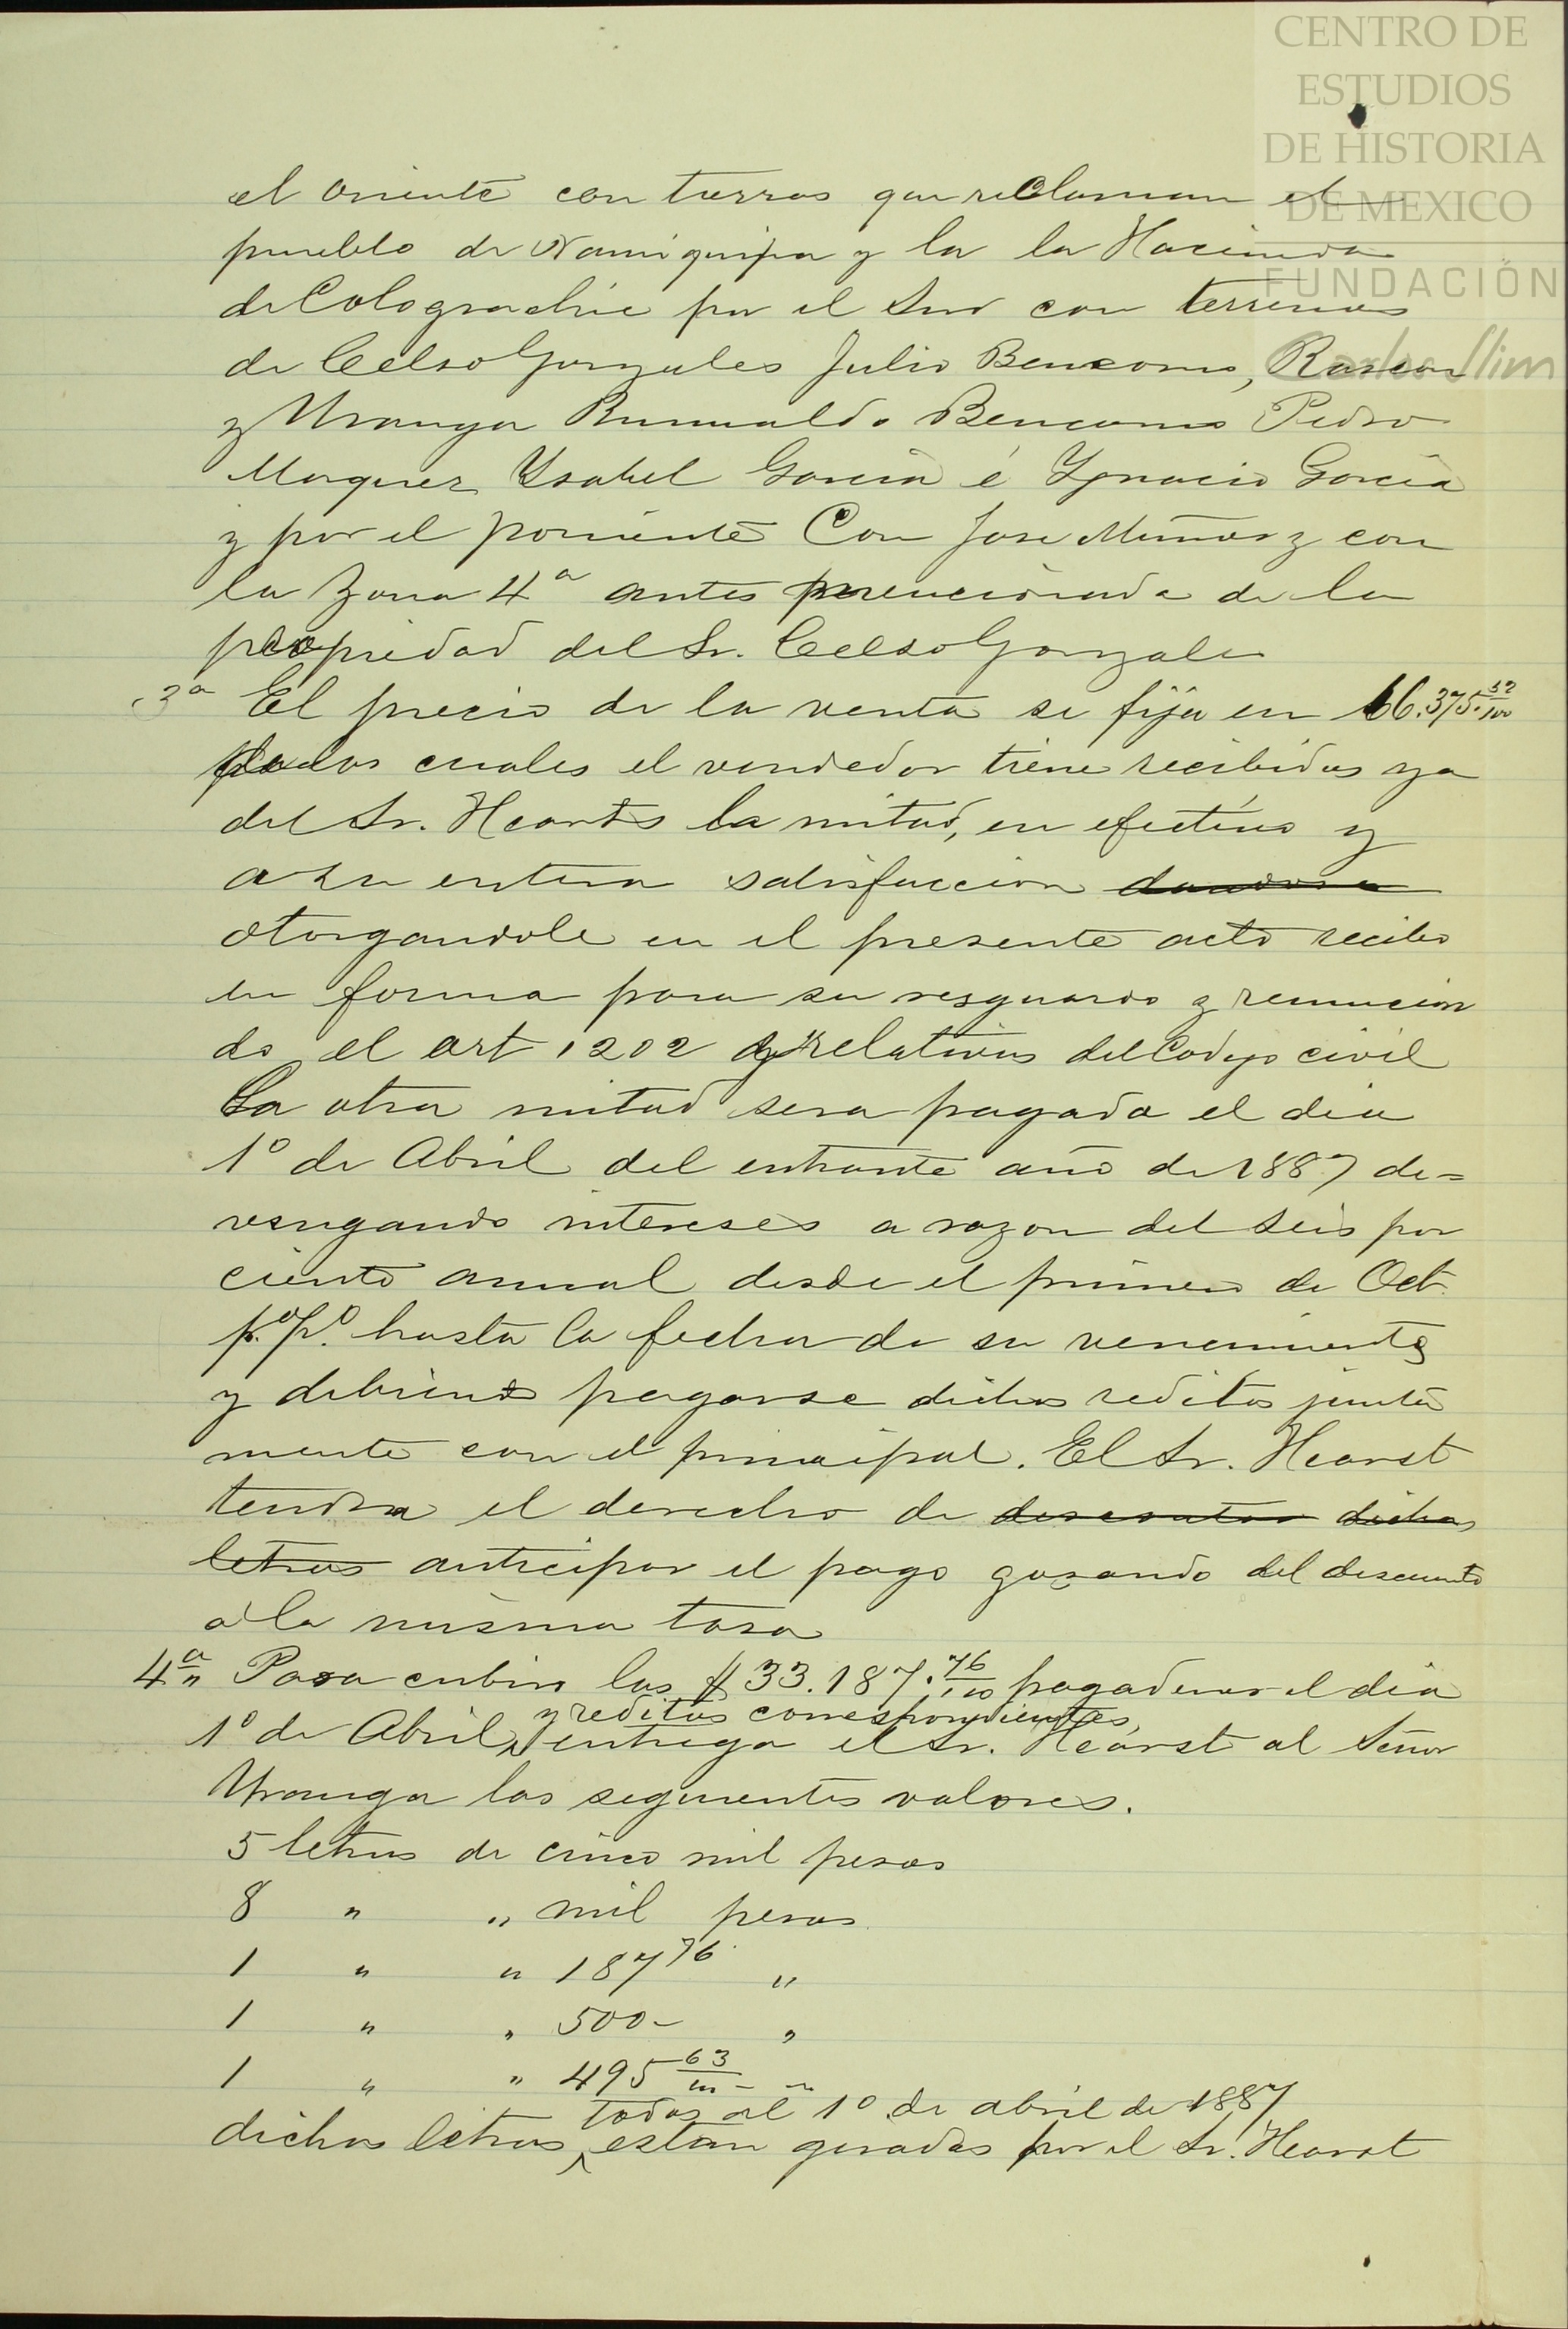 CENTRO DE
ESTUDIOS
DE HISTORIA
DE MEXICO
FUNDACIÓN
Carlos Slim
el oriente con tierras que reclaman el
pueblo de Namiquipa y la la Hacienda
de por el Sud con terrenos
de Celso Gonzales Julio Bencomo, Rascon
y Uranga Rumualdo Bencomo Pedro
Marquez Ysabel Garcia é Ygnacio Garcia
y por el poniente Con Jose Muñoz y con
la Zona 4a antes mencionada de la
propiedad del Sr. Celso Gonzales
3a El precio de la venta se fija en 66.375.52/100
de los cuales el vendedor tiene recibidos ya
del Sr. Hearts la mitad, en efectivo y
a su entera satisfaccion
otorgandole en el presente acto recibo
en forma para su resguardo y renuncian
do el art 1202 y relativos del Codigo civil
La otra mitad sera pagada el dia
1o de Abril del entrante año de 1887 de=
vengando intereses a razon del seis por
ciento anual desde el primero de Oct.
p.o p.o hasta la fecha de su vencimiento
y debiendo pagarse dichos reditos junta
mente con el principal. El Sr. Hearst
tendra el derecho de descontar dichas
letras anticipar el pago gozando del descuento
a la misma tasa
4a Para cubrir los $33.187.76/100 pagaderos el dia
y reditos correspondientes,
1o de Abril, entrega el Sr. Hearst al Señor
Uranga los seguientes valores.
5 letras de cinco mil pesos
8 " " mil pesos
1 " " 187 76 "
1 " " 500- "
1 " " 495 63/100 - "
todas al 1o de abril de 1887
dichas letras están giradas por el Sr. Hearst